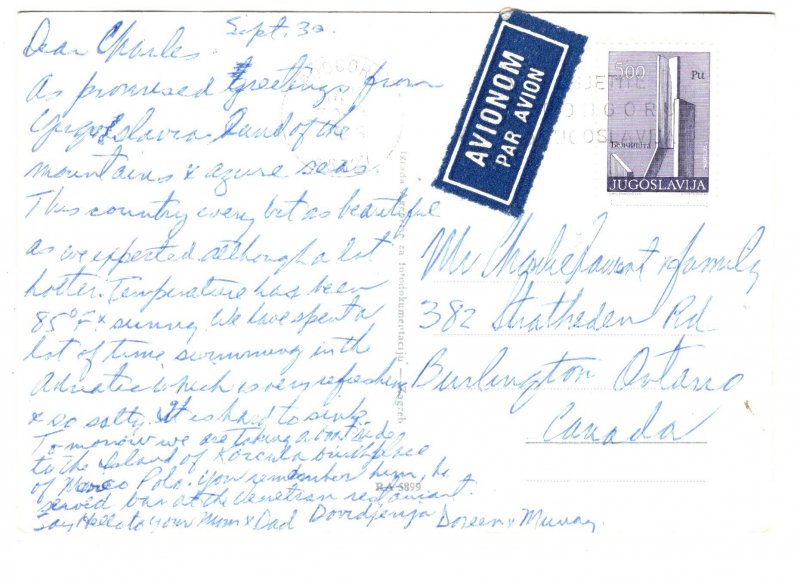 Sept. 30
Dear Charles.
As promised greetings from
Yugoslavia land of the
mountains & azure seas.
This country every bit as beautiful
as we expected although a lot
hotter. Temperature has been
85°F & sunny. We have spent a
lot of time swimming in the
Adriatic which is very refreshing
& so salty. It is hard to sink.
Tomorrow we are taking a boat ride
to the island of Korcula birthplace
of Marco Polo. You remember him, he
served bar at the Venetian restaurant.
Say Hello to your Mom & Dad Dovidjenja Doreen & Murray
AVIONOM
PAR AVION
5.00 Pu
JUGOSLAVIJA
Mr Charlie & family
382 Stratheden Rd
Burlington Ontario
Canada
za fotodokumentaciju — Zagreb
RA-5899